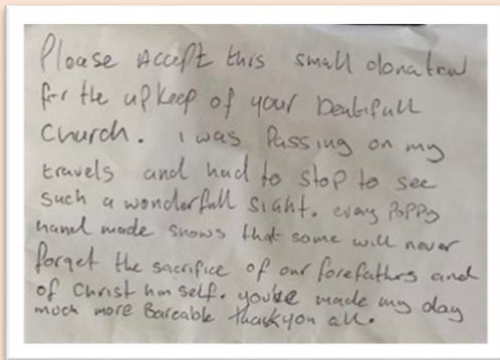 Please Accept this small donation
for the upkeep of your beatifull
Church. i was Passing on my
travels and had to stop to see
such a wonderfull sight. every Poppy
hand made shows that some will never
forget the sacrifice of our forefathers and
of Christ him self. you've made my day
much more Bareable thankyou all.